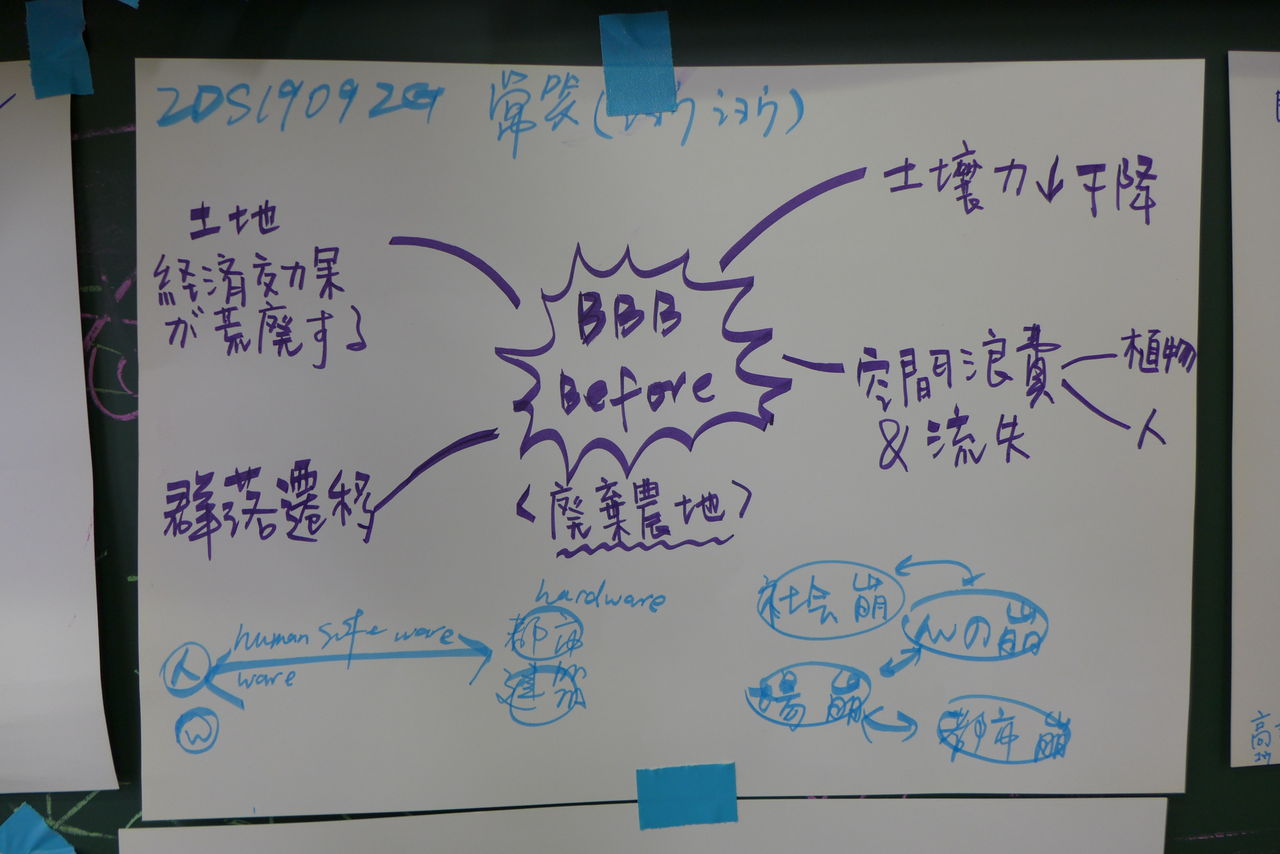 2DS19092G 常笑(
土地
経済効果
が荒廃する
群落遷移
BBB
Before
<廃棄農地>
土壌力↓下降
空間浪費
&流失
植物
人
hardware
都市
建築
人
human
ware
ware
W
社会崩
心の崩
場崩
都市崩
高